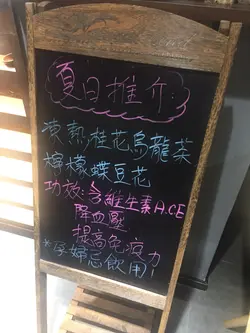 夏日推介
凍熱桂花烏龍茶
檸檬蝶豆花
功效:含維生素A.C.E
降血壓
提高免疫力
*孕婦忌飲用!